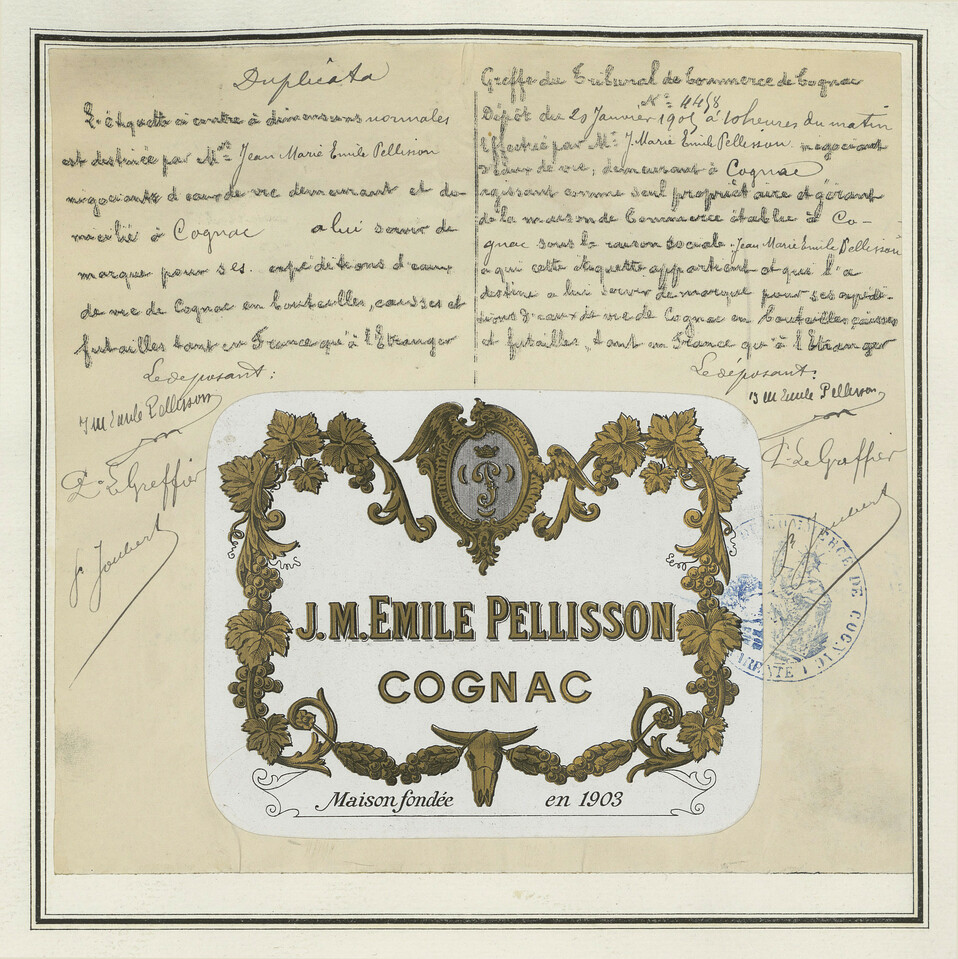 Duplicata
L'étiquette ci contre à dimensions normales
est destinée par Mr Jean Marie Emile Pellisson
négociants d'eaux de vie demeurant et do-
micilié à Cognac à lui servir de
marque pour ses expéditions d'eaux
de vie de Cognac en bouteilles, caisses et
futailles tant en France qu'à l'Etranger
Le déposant:
J M Emile Pellisson
P. Le Greffier
J. Joubert
Greffe du Tribunal de Commerce de Cognac
Nº 4458
Dépôt du 20 Janvier 1905 à 10 heures du matin
Effectué par Mr J. Marie Emile Pellisson négociant
d'eaux de vie, demeurant à Cognac
agissant comme seul propriétaire et gérant
de la maison de Commerce établie à Co-
gnac sous la raison sociale Jean Marie Emile Pellisson
à qui cette étiquette appartient et qui l'a
destine a lui servir de marque pour ses expédi-
tions d'eaux de vie de Cognac en bouteilles caisses
et futailles, tant en France qu'à l'Etranger
Le déposant:
J M Emile Pellisson
P. Le Greffier
J. Joubert
J.M. EMILE PELLISSON
COGNAC
Maison fondée en 1903
COMMERCE DE COGNAC